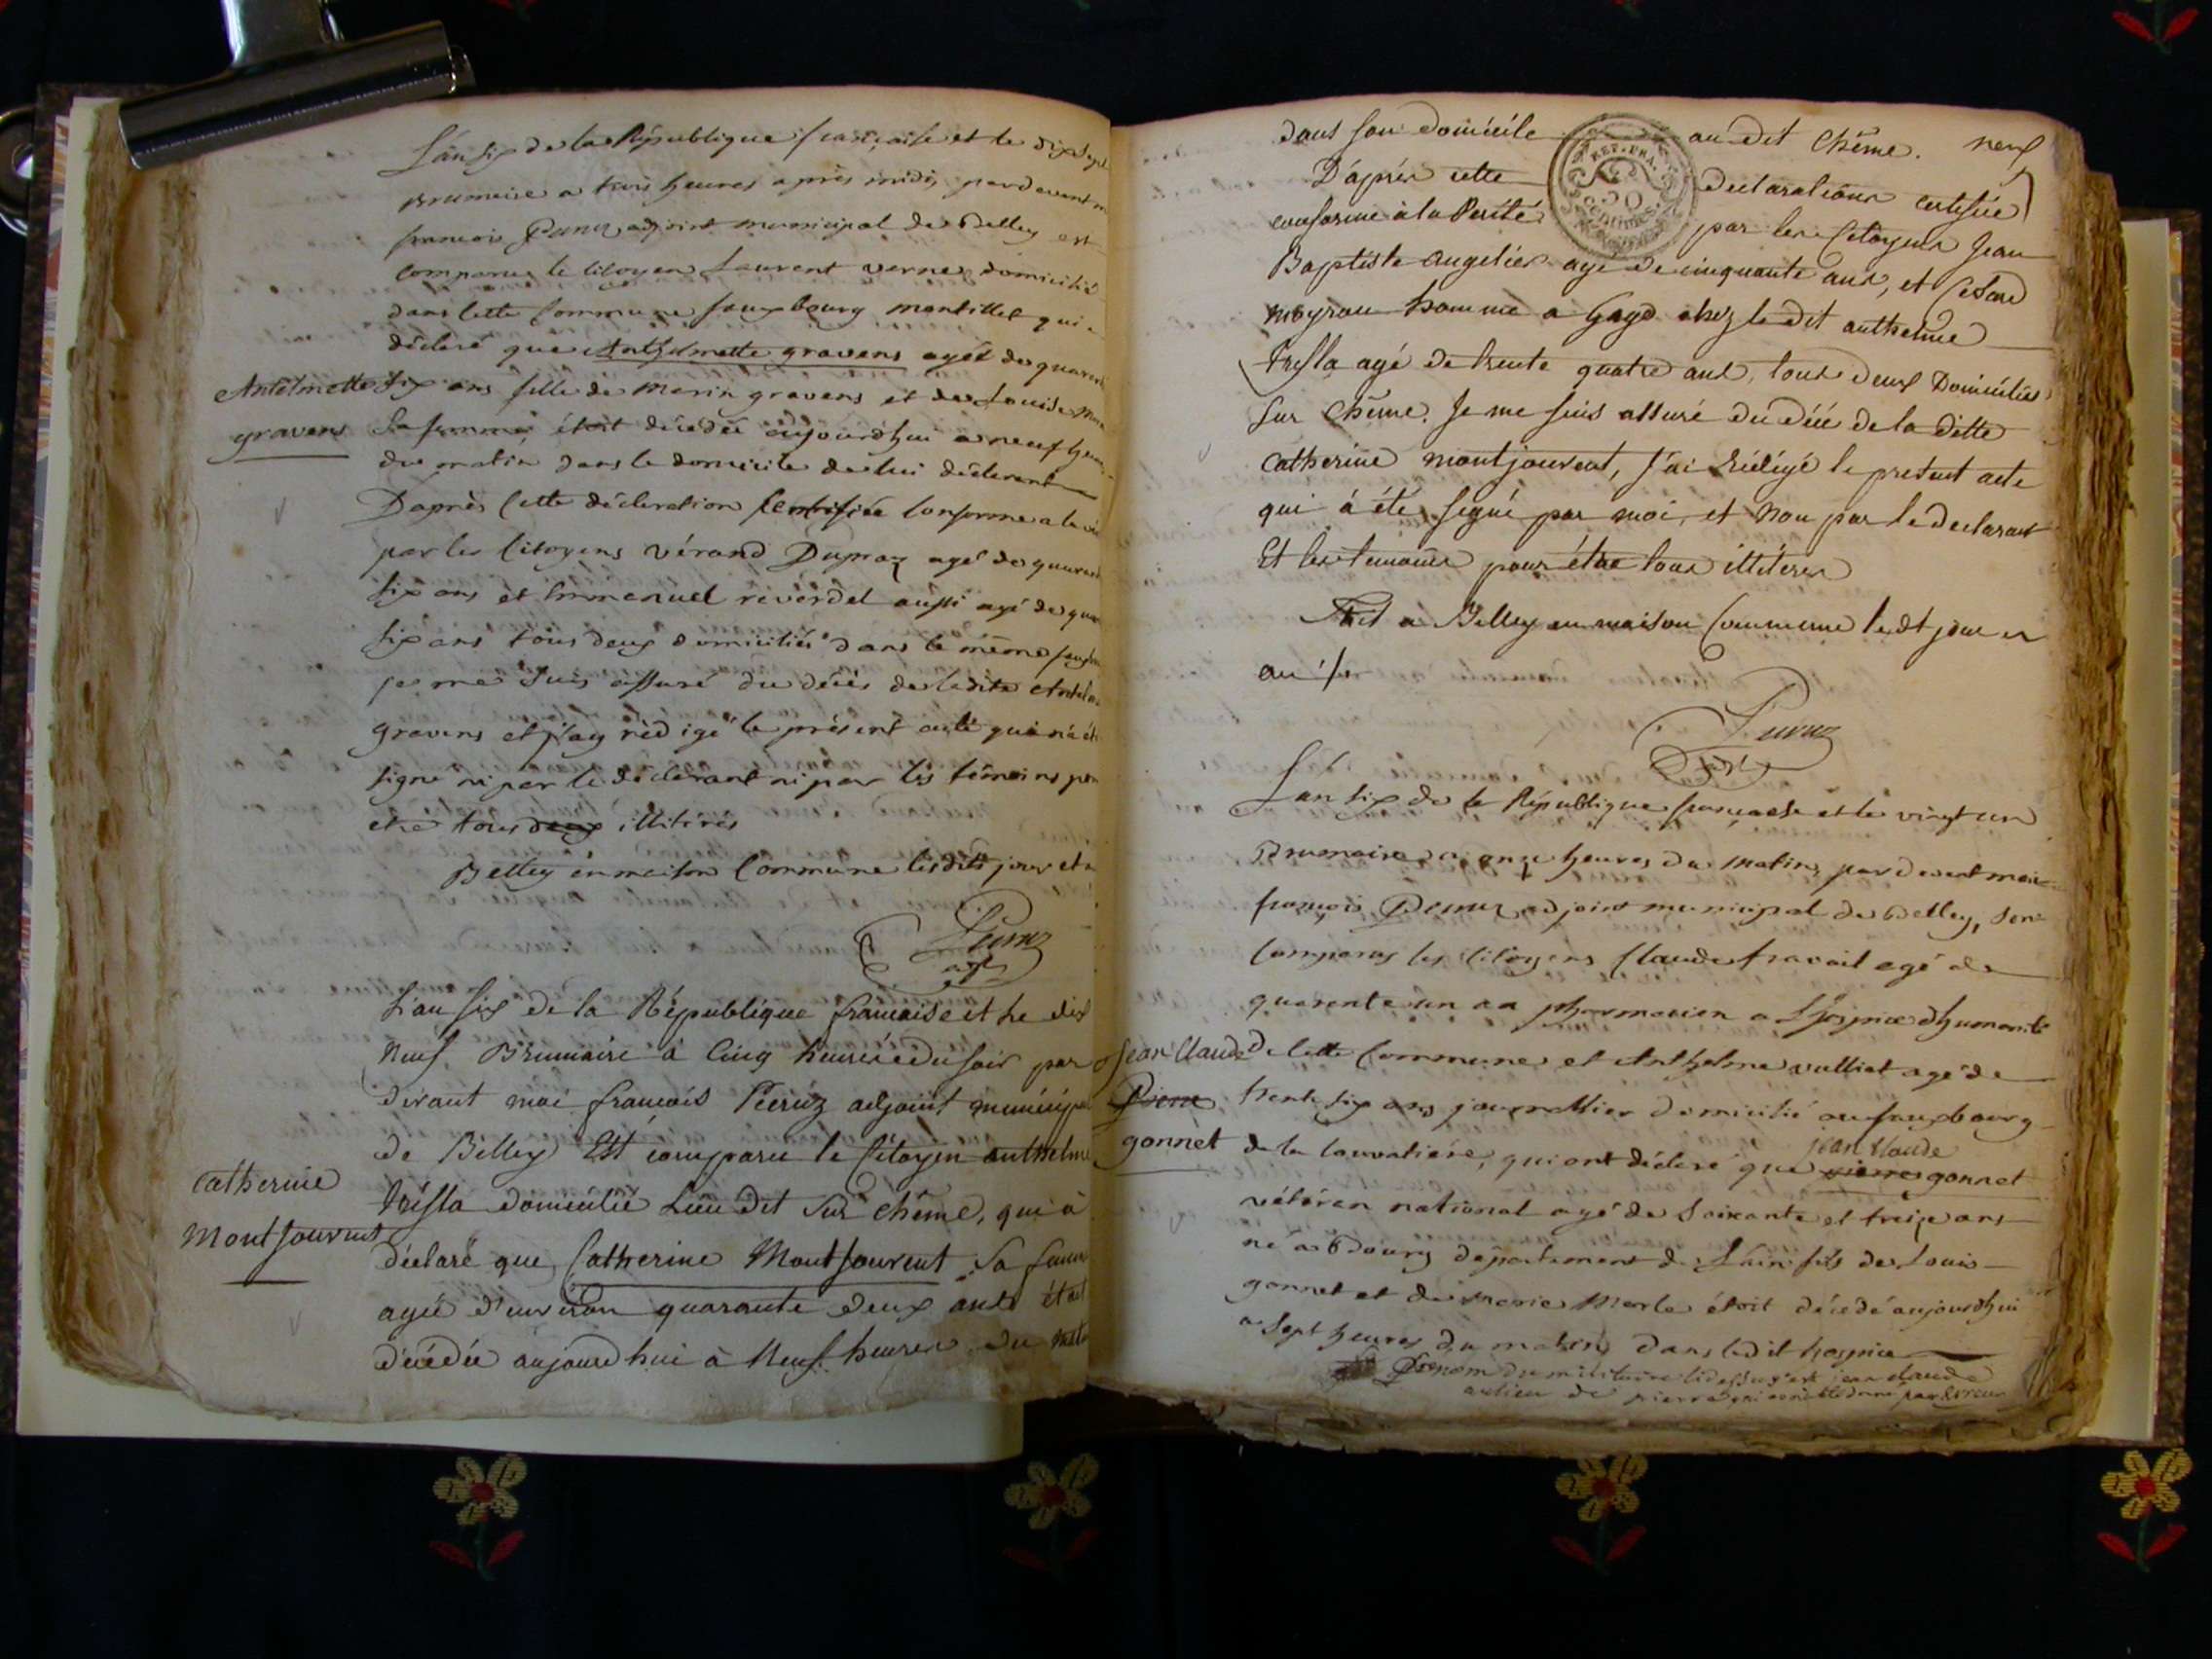 L'an six de la République française et le dix sept
Brumaire a trois heures après midi, pardevant
francois adjoint municipal de Belley est
comparu le citoyen Laurent verne domicilié
dans cette Commune fauxbourg montillet qui a
déclaré que Anthelmette gravens agée de quarente
Antelmette
gravens
six ans fille de Marin gravens et de Louise
sa femme, étoit décédée aujourdhui a neuf heures
du matin dans le domicile de lui déclarant
D'après Cette déclaration certifiée conforme a la
par les Citoyens vérand Dupraz agé de quarente
six ans et Emmenuel reverdel aussi agé de
six ans tous deux domiciliés dans le même
je me suis assuré du décès de ladite
gravens et j'ay rédigé le présent acte qui n'a été
signé ni par le déclarant ni par les témoins pour
etre tous deux illitérés
Belley en maison Commune lesdits jour et
L'an six de la République francaise et le dix
neuf Brumaire à Cinq heures du soir par
devant moi francois adjoint municipal
de Belley Est comparu le Citoyen anthelme
catherine
Montjouvent
trésla domicilié Lieu dit Sur chême, qui à
déclaré que Catherine Montjouvent sa femme
agée d'environ quarante deux ans était
décédée aujourdhui à Neuf heures du matin
dans son domicile au dit Chême. neuf
REP. FRA.
50
CENTIMES
D'après cette declaration certifiée
conforme à la Verité par les Citoyens Jean
Baptiste angelier agé de cinquante ans, et
moyrou homme a Gage chez le dit anthelme
tresla agé de trente quatre ans, tous deux Domiciliés
sur Chême. Je me suis assuré du décé de la ditte
Catherine montjouvent, J'ai rédégé le present acte
qui à été signé par moi, et non par le declarant
Et les temoins pour être tous illitérés
Fait a Belley en maison Commune ledt jour et
an
L'an six de la République française et le vingt un
Brumaire a onze heures du matin, pardevant moi
françois adjoint municipal de Belley, sont
comparus les citoyens Claude fravail agé de
quarente un an pharmacien a L'hospice dhumanité
Jean Claude
Pierre
gonnet
de Cette Commune et Anthelme vulliet agé de
trente six ans journallier domicilié au fauxbourg
de la lavratière, qui ont déclaré que pierre gonnet
jean Claude
vétéran national agé de soixante et treize ans
né a Bourg département de L'ain fils de Louis
gonnet et de marie Merle étoit décédé aujourdhui
a sept heures du matin dans ledit hospice
Prenom du militaire cidessus est jean claude
aulieu de pierre qui avoit été donné par Erreur